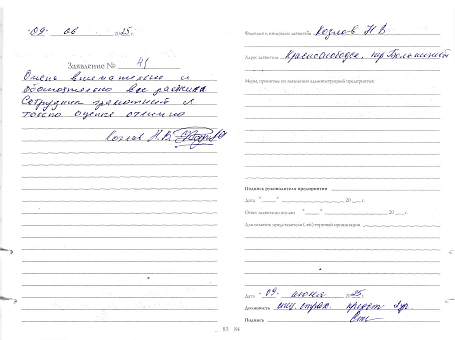 "09" 06 2025.
Заявление № 41
Очень внимательно и
обстоятельно все разъяснил
Сотрудник грамотный и
только оценка отлично
Козлов Н.В.
Фамилия и инициалы заявителя Козлов Н В
Адрес заявителя Краснослободск,
Меры, принятые по заявлению администрацией предприятия:
Подпись руководителя предприятия
Дата "___" 20___г.
Ответ заявителю послан "___" 20___г.
Для отметок представителя (-ей) торговой организации
Дата "09" июня 2025.
Должность
Подпись
83 84